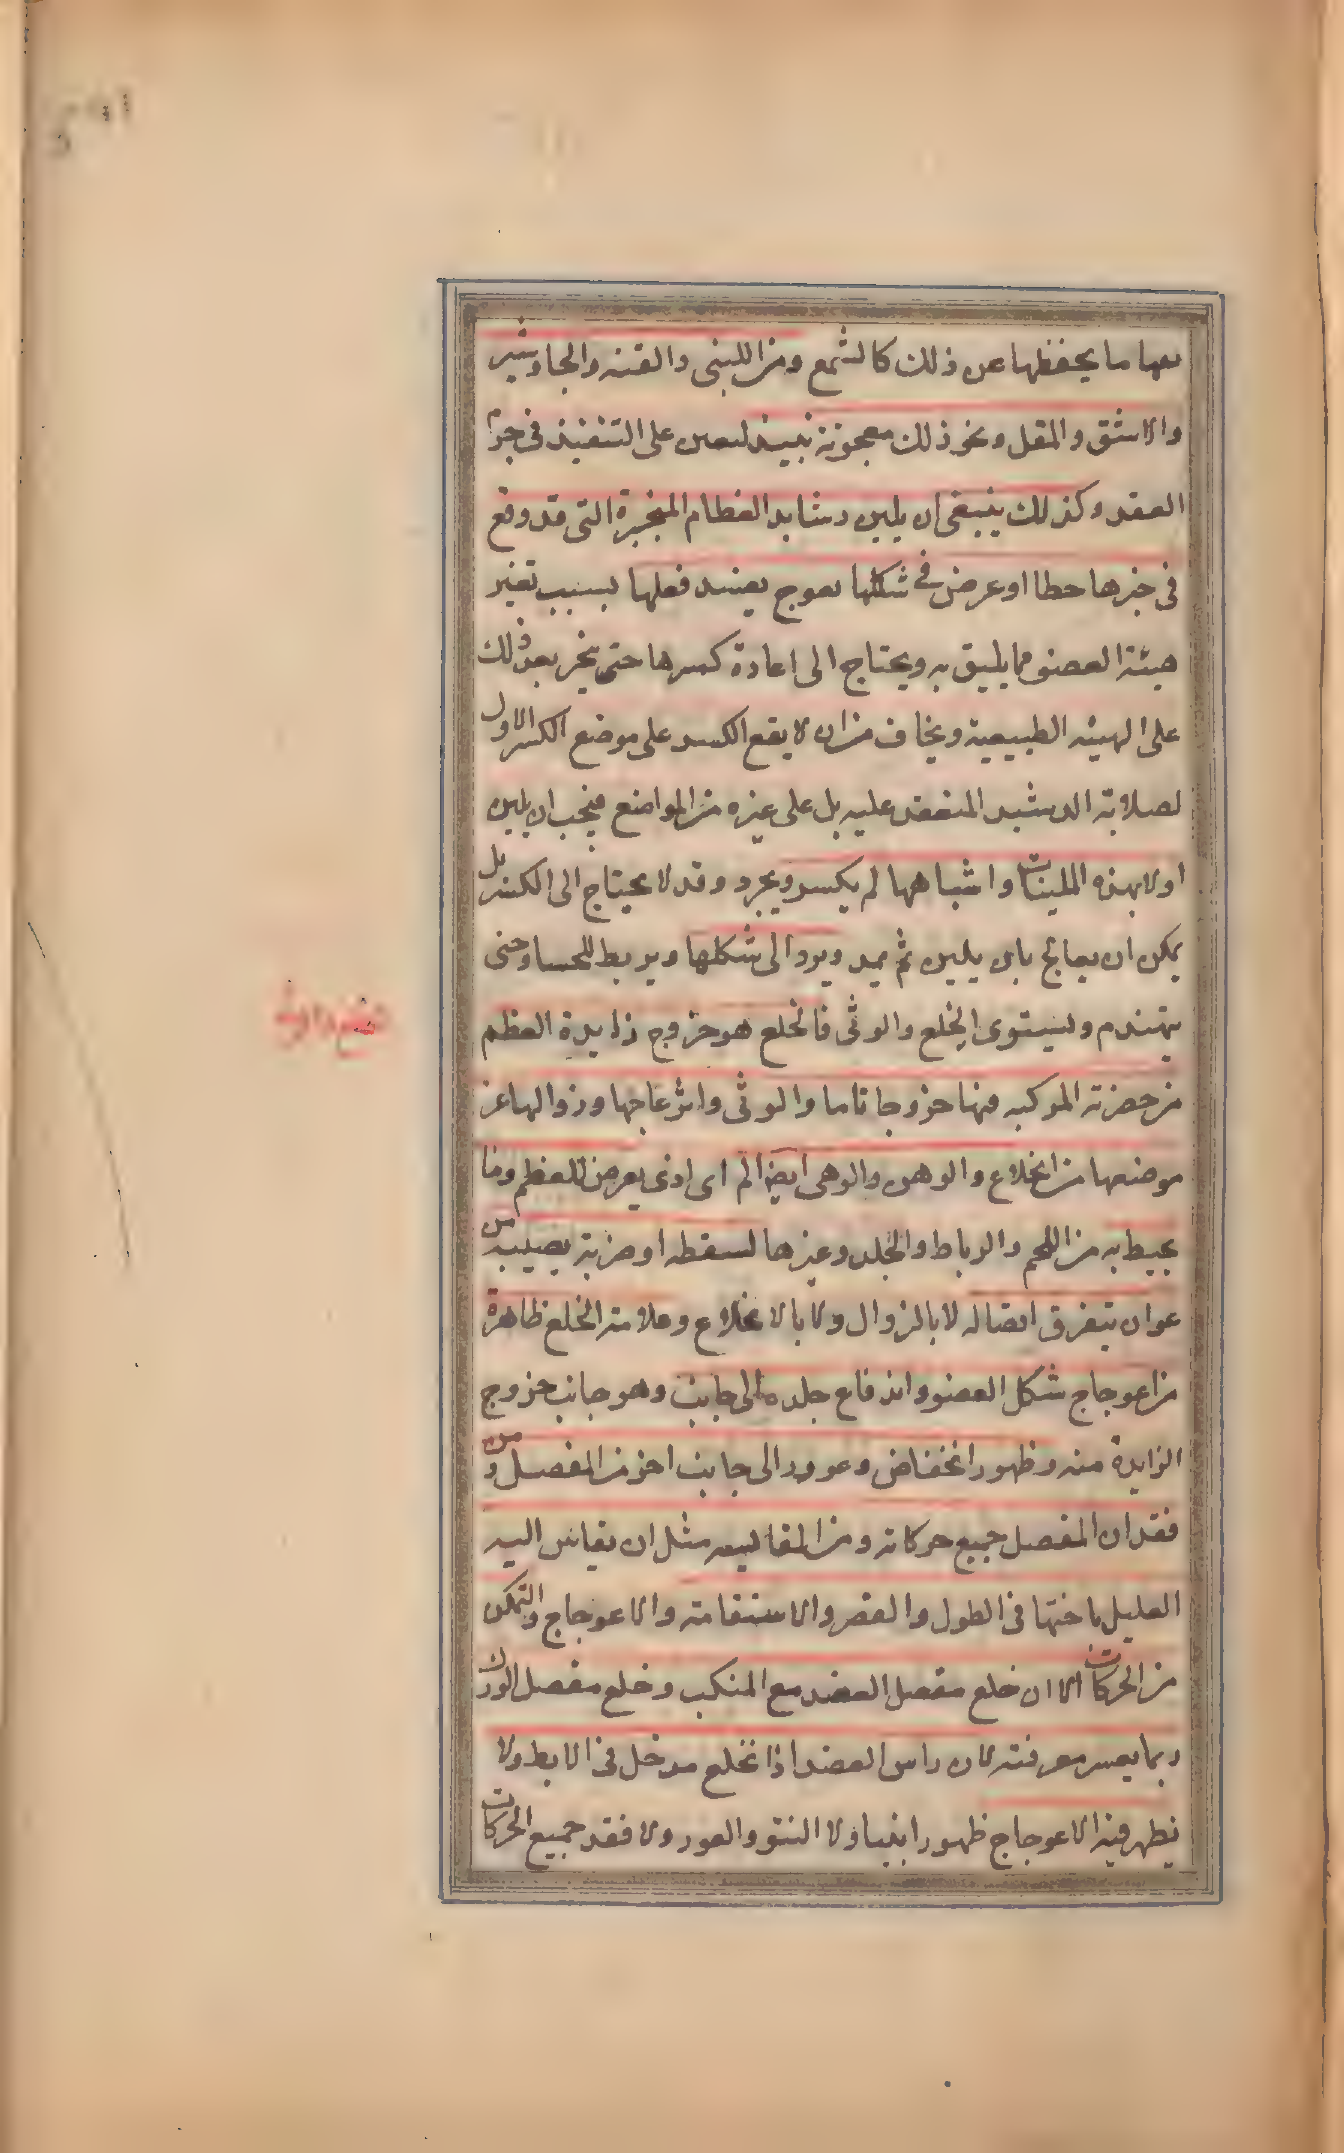 معها ما يحفظها عن ذلك كالشمع ومن اللبنى والقنه والجاوشير
والاشق والمقل ونحو ذلك معجونة بنبيذ لتعين على التنفيذ فى جرم
العقد وكذلك ينبغى ان يلين دشابد العظام المنجبرة التى قد وقع
فى جبرها خطا او عرض فى شكلها تعوج يفسد فعلها بسبب تغير
هيئة العضو مما يليق به ويحتاج الى اعادة كسرها حتى يجبر بعد ذلك
على الهيئه الطبيعية ويخاف من ان لا يقع الكسر على موضع الكسر الاول
لصلابة الدشبد المنعقد عليه بل على غيره من المواضع فيجب ان يلين
اولا بهذه الملينات واشباهها ثم يكسر ويجرد وقد لا يحتاج الى الكسر بل
يمكن ان يعالج بان يلين ثم يمد ويرد الى شكلها ويربط حتى
يتهندم ويستوى الخلع والوثى فالخلع هو خروج زايدة العظم
من حفرته المركبه فيها خروجا تاما والوثى وانزعاجها وزوالها عن
موضعها من انخلاع والوهن والوهى ايضا الم اى اذى يعرض للعظم وما
يحيط به من اللحم والرباط والجلد وغيرها لسقطه او ضربة يصيبه من
غير ان يتفرق اتصاله لا بالزوال ولا بالانخلاع وعلامة الخلع ظاهرة
من اعوجاج شكل العضو واندفاع جلده الى جانب وهو جانب خروج
الزايدة منه وظهور انخفاض وغوور الى جانب اخر من المفصل ومن
فقدان المفصل جميع حركاته ومن المقايسه مثل ان يقاس اليه
العليل باختها فى الطول والقصر والاستقامة والاعوجاج والتمكن
من الحركات الا ان خلع مفصل العضد مع المنكب وخلع مفصل الورك
ربما يعسر معرفته لان راس العضد اذا انخلع مدخل فى الابط ولا
يظهر فيه الاعوجاج ظهورا بينا ولا النتو والغور ولا فقد جميع الحركات